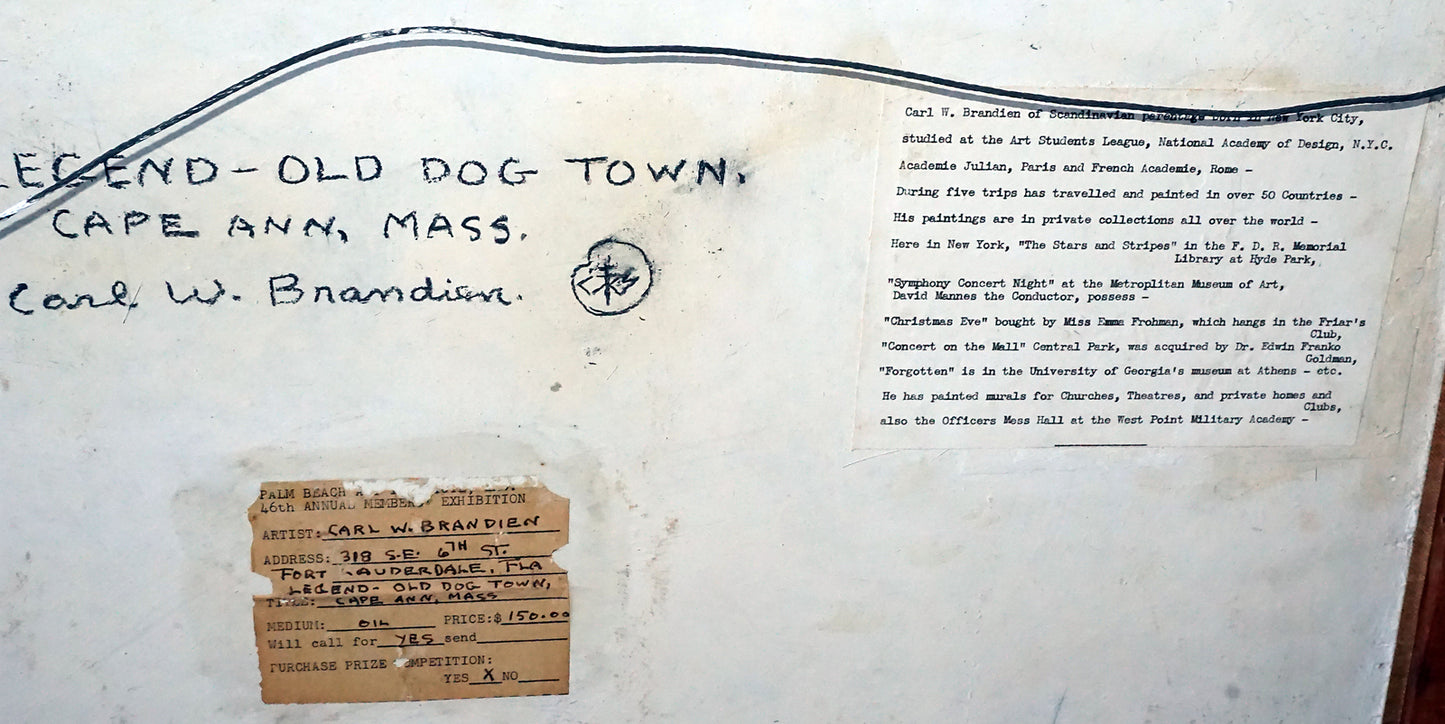 LEGEND - OLD DOG TOWN,
CAPE ANN, MASS.
Carl W. Brandien.
Carl W. Brandien of Scandinavian parentage born in New York City,
studied at the Art Students League, National Academy of Design, N.Y.C.
Academie Julian, Paris and French Academie, Rome -
During five trips has travelled and painted in over 50 Countries -
His paintings are in private collections all over the world -
Here in New York, "The Stars and Stripes" in the F. D. R. Memorial
Library at Hyde Park,
"Symphony Concert Night" at the Metroplitan Museum of Art,
David Mannes the Conductor, possess -
"Christmas Eve" bought by Miss Emma Frohman, which hangs in the Friar's
Club,
"Concert on the Mall" Central Park, was acquired by Dr. Edwin Franko
Goldman,
"Forgotten" is in the University of Georgia's museum at Athens - etc.
He has painted murals for Churches, Theatres, and private homes and
Clubs,
also the Officers Mess Hall at the West Point Military Academy -
PALM BEACH
46th ANNUAL MEMBERS' EXHIBITION
ARTIST: CARL W. BRANDIEN
ADDRESS: 318 S.E. 6TH ST.
FORT LAUDERDALE, FLA
LEGEND - OLD DOG TOWN,
TITLE: CAPE ANN, MASS
MEDIUM: OIL PRICE:$ 150.00
Will call for YES send
PURCHASE PRIZE COMPETITION:
YES X NO